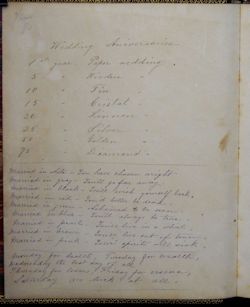 Wedding Aniversaries
1st year Paper wedding.
5 " Wooden "
10 " Tin "
15 " Cristal "
20 "
25 " Silver "
50 " Golden "
75 " Diamond "
Married in white - You have chosen right
Married in grey - You'll go far away.
Married in black - You'll wish yourself back.
Married in red - You'd better be dead.
Married in green - Ashamed to be seen.
Married in blue - You'll always be true.
Married in pearl - You'll live in a whirl.
Married in brown - You'll live out of town.
Married in pink - Your spirits will sink.
Monday for health Tuesday for wealth,
Wednesday the best day of all.
Thursday for losses Friday for crosses,
Saturday no luck at all.